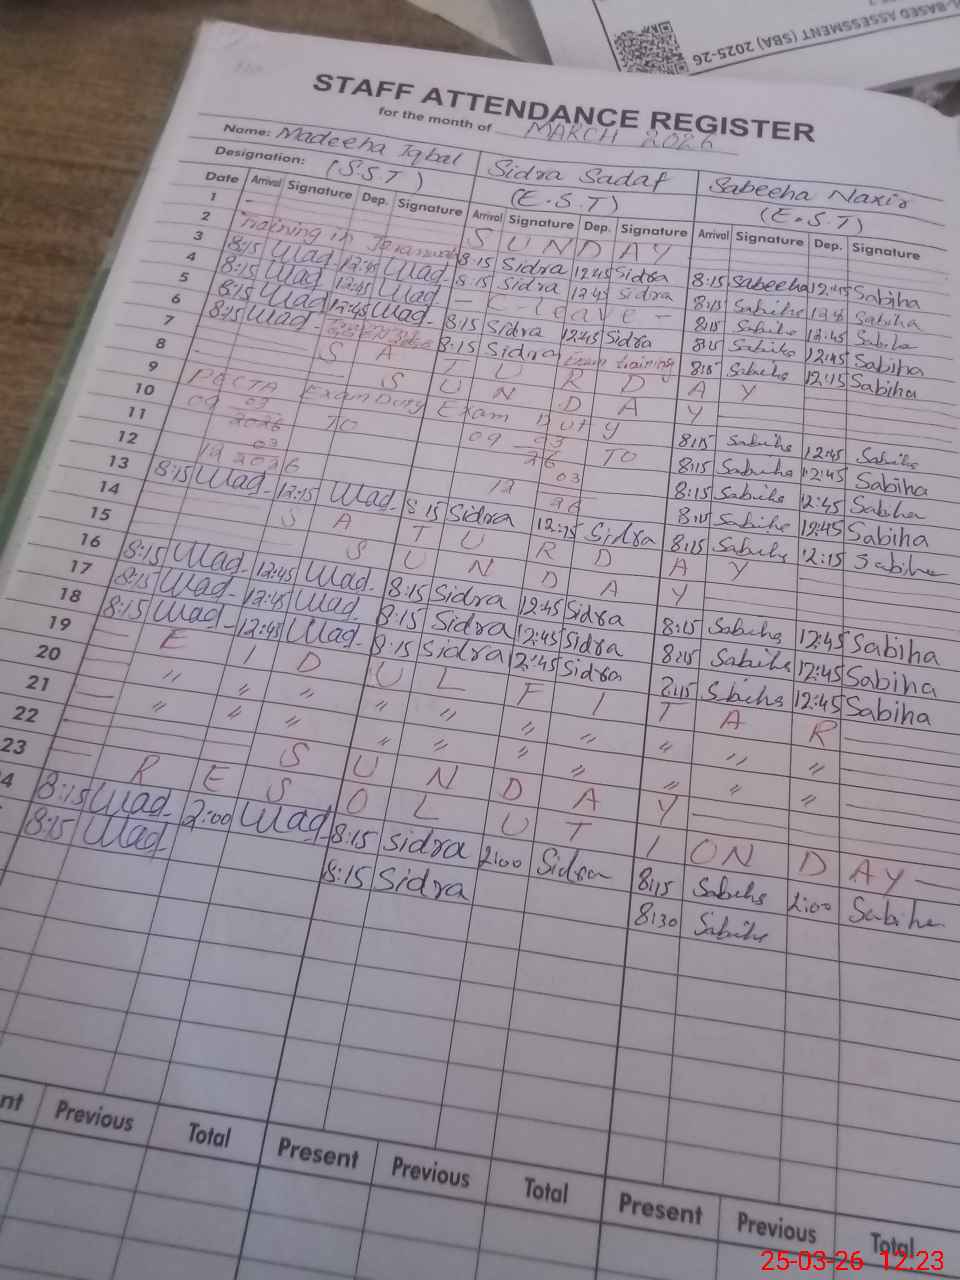 -BASED ASSESSMENT (SBA) 2025-26
STAFF ATTENDANCE REGISTER
for the month of MARCH 2026
Name: Madeeha Iqbal Sidra Sadaf Sabeeha Nazir
Designation: (S.S.T) (E.S.T) (E.S.T)
Date Arrival Signature Dep. Signature Arrival Signature Dep. Signature Arrival Signature Dep. Signature
1 - S U N D A Y
2 Training in 8:15 Sidra 12:45 Sidra 8:15 Sabeeha 12:45 Sabiha
3 8:15 Mad 12:45 Mad 8:15 Sidra 12:45 Sidra 8:15 Sabiha Sabiha
4 8:15 Mad 12:45 Mad - C-leave - 8:15 Sabiha 12:45 Sabiha
5 8:15 Mad 12:45 Mad 8:15 Sidra 12:45 Sidra 8:15 Sabiha 12:45 Sabiha
6 8:15 Mad 8:15 Sidra Exam training 8:15 Sabiha 12:15 Sabiha
7 S A T U R D A Y
8 S U N D A Y
9 PECTA Exam Duty Exam Duty 8:15 Sabiha 12:45 Sabiha
10 09 03 2026 TO 09 03 26 TO 8:15 Sabiha 12:45 Sabiha
11 03 03 8:15 Sabiha 12:45 Sabiha
12 12 2026 12 26 8:15 Sabiha 12:45 Sabiha
13 8:15 Mad 12:15 Mad 8:15 Sidra 12:15 Sidra 8:15 Sabiha 12:15 Sabiha
14 S A T U R D A Y
15 S U N D A Y
16 8:15 Mad 12:45 Mad 8:15 Sidra 12:45 Sidra 8:15 Sabiha 12:45 Sabiha
17 8:15 Mad 12:45 Mad 8:15 Sidra 12:45 Sidra 8:15 Sabiha 12:45 Sabiha
18 8:15 Mad 12:45 Mad 8:15 Sidra 12:45 Sidra 8:15 Sabiha 12:45 Sabiha
19 E I D U L F I T A R
20 " " " " " " " " " "
21 " " " " " " " " " "
22 S U N D A Y
23 R E S O L U T I O N D A Y
4 8:15 Mad 2:00 Mad 8:15 Sidra 2:00 Sidra 8:15 Sabiha 2:00 Sabiha
8:15 Mad 8:15 Sidra 8:30 Sabiha
nt Previous Total Present Previous Total Present Previous Total
25-03-26 12:23